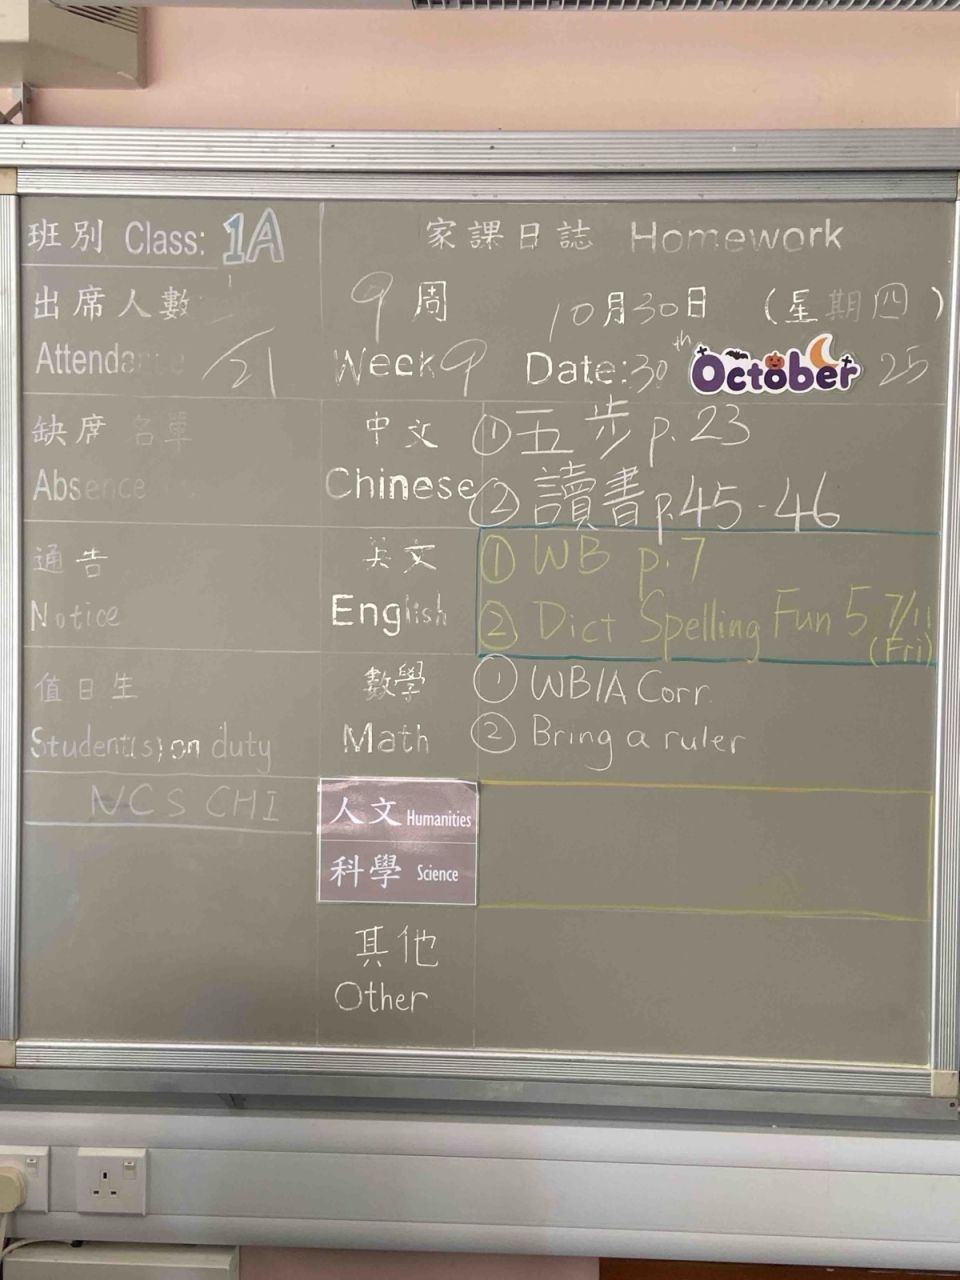 班別 Class: 1A
家課日誌 Homework
出席人數
Attendance /21
9周 10月30日 (星期四)
Week 9 Date: 30th October 25
缺席名單
Absence
中文
Chinese
① 五步 p.23
② 讀書 p.45-46
通告
Notice
英文
English
① WB p.7
② Dict Spelling Fun 5 7/11
(Fri)
值日生
Student(s) on duty
數學
Math
① WB1A Corr.
② Bring a ruler
NCS CHI
人文 Humanities
科學 Science
其他
Other